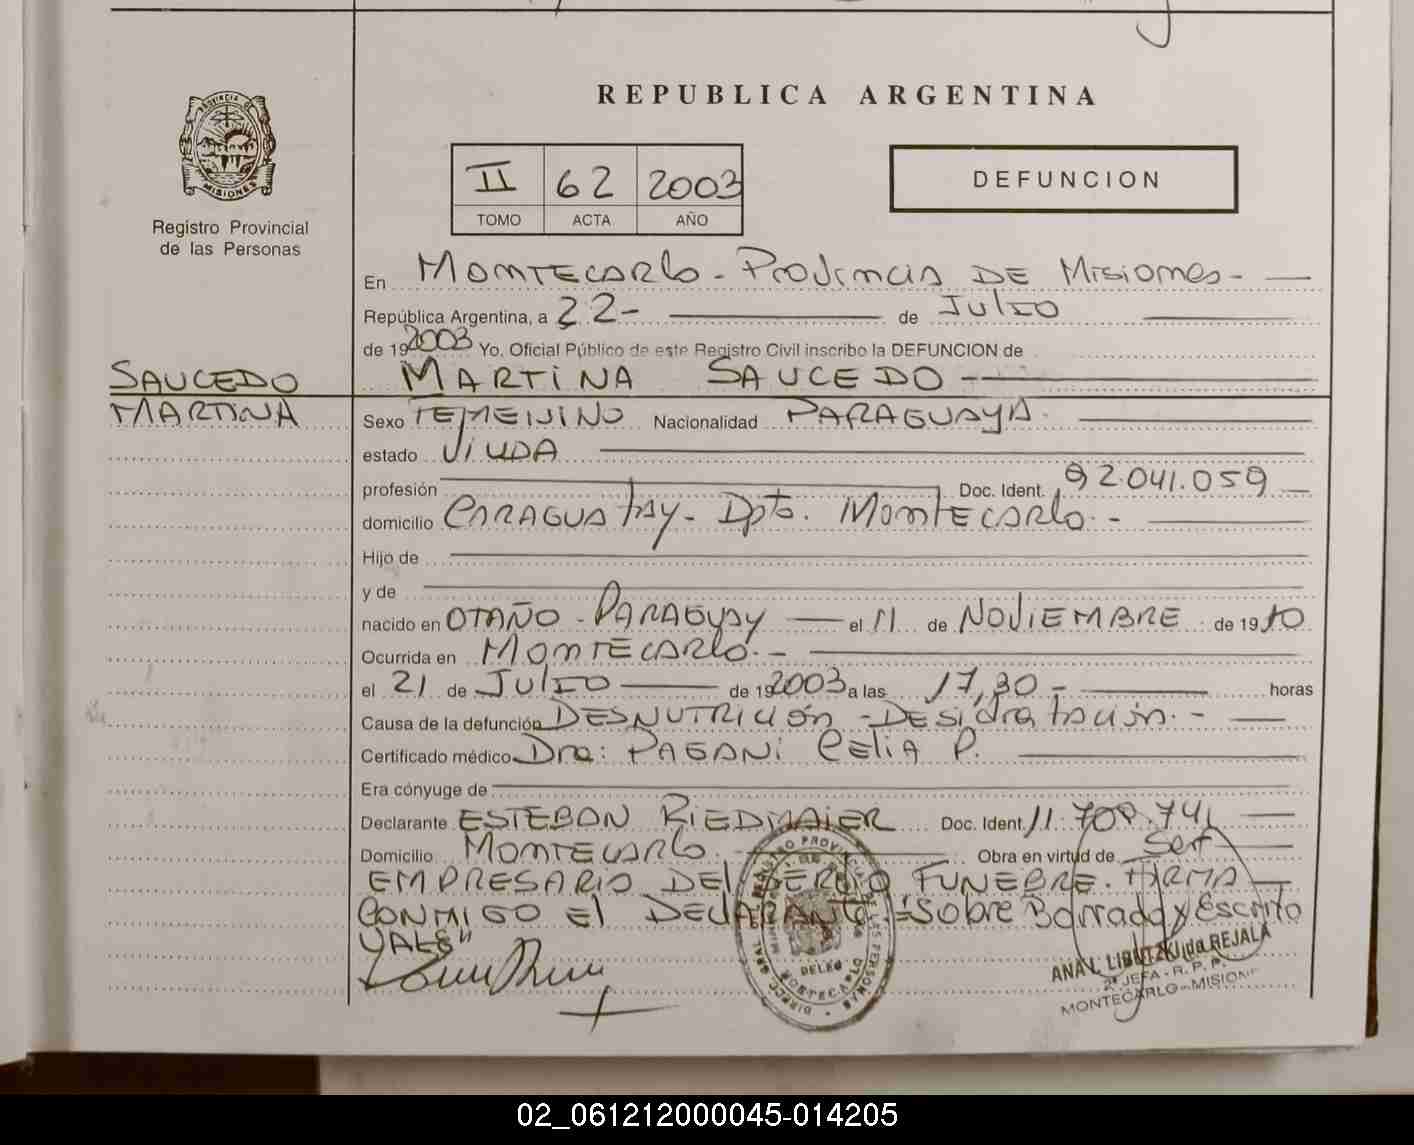 REPUBLICA ARGENTINA
PROVINCIA DE
MISIONES
Registro Provincial
de las Personas
II 62 2003
TOMO ACTA AÑO
DEFUNCION
En MONTECARLO - PROVINCIA DE MISIONES -
República Argentina, a 22 - de JULIO
de 192003 Yo, Oficial Público de este Registro Civil inscribo la DEFUNCION de
SAUCEDO MARTINA SAUCEDO
MARTINA Sexo FEMENINO Nacionalidad PARAGUAYA.
estado VIUDA
profesión Doc. Ident. 92.041.059
domicilio CARAGUATAY - Dpto. MONTECARLO. -
Hijo de
y de
nacido en OTAÑO - PARAGUAY el 11 de NOVIEMBRE de 1910
Ocurrida en MONTECARLO. -
el 21 de JULIO de 192003 a las 17,30 - horas
Causa de la defunción DESNUTRICIÓN - DESIDRATACIÓN. -
Certificado médico Dra: PAGANI CELIA P.
Era cónyuge de
Declarante ESTEBAN RIEDMAIER Doc. Ident. 11.709.741
Domicilio MONTECARLO. Obra en virtud de SER
EMPRESARIO DEL SERVICIO FUNEBRE. FIRMA
CONMIGO EL DECLARANTE "Sobre Borrado y Escrito
VALE"
MONTECARLO
ANA L. LIBUTZKI de REJALA
2ª JEFA - R. P. P.
MONTECARLO - MISIONES
02_061212000045-014205